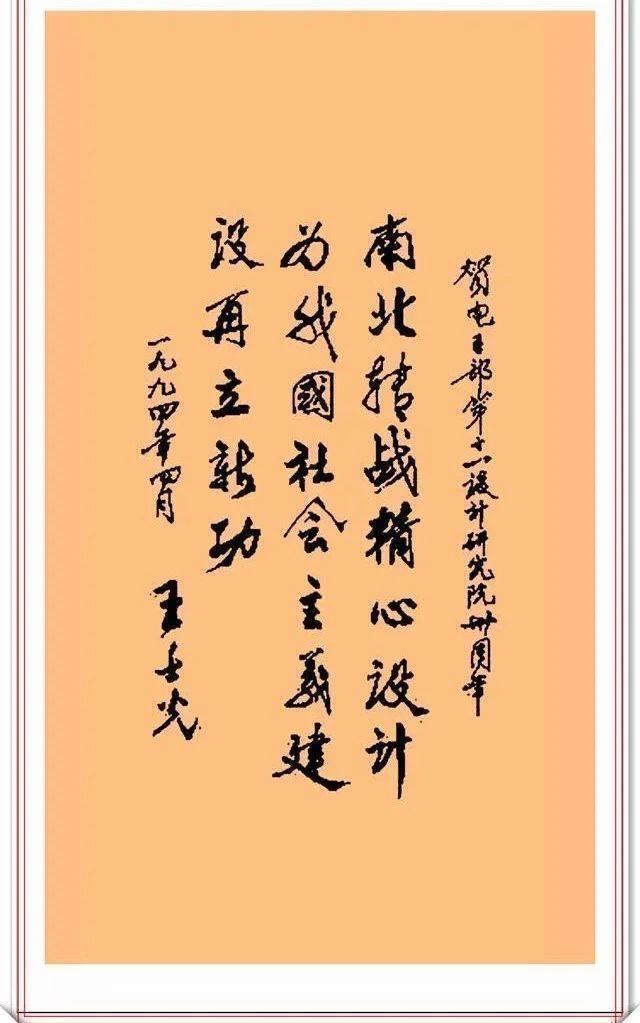 贺电子部第十一设计研究院卅周年
南北转战精心设计
为我國社会主义建
设再立新功
一九九四年四月
王士光